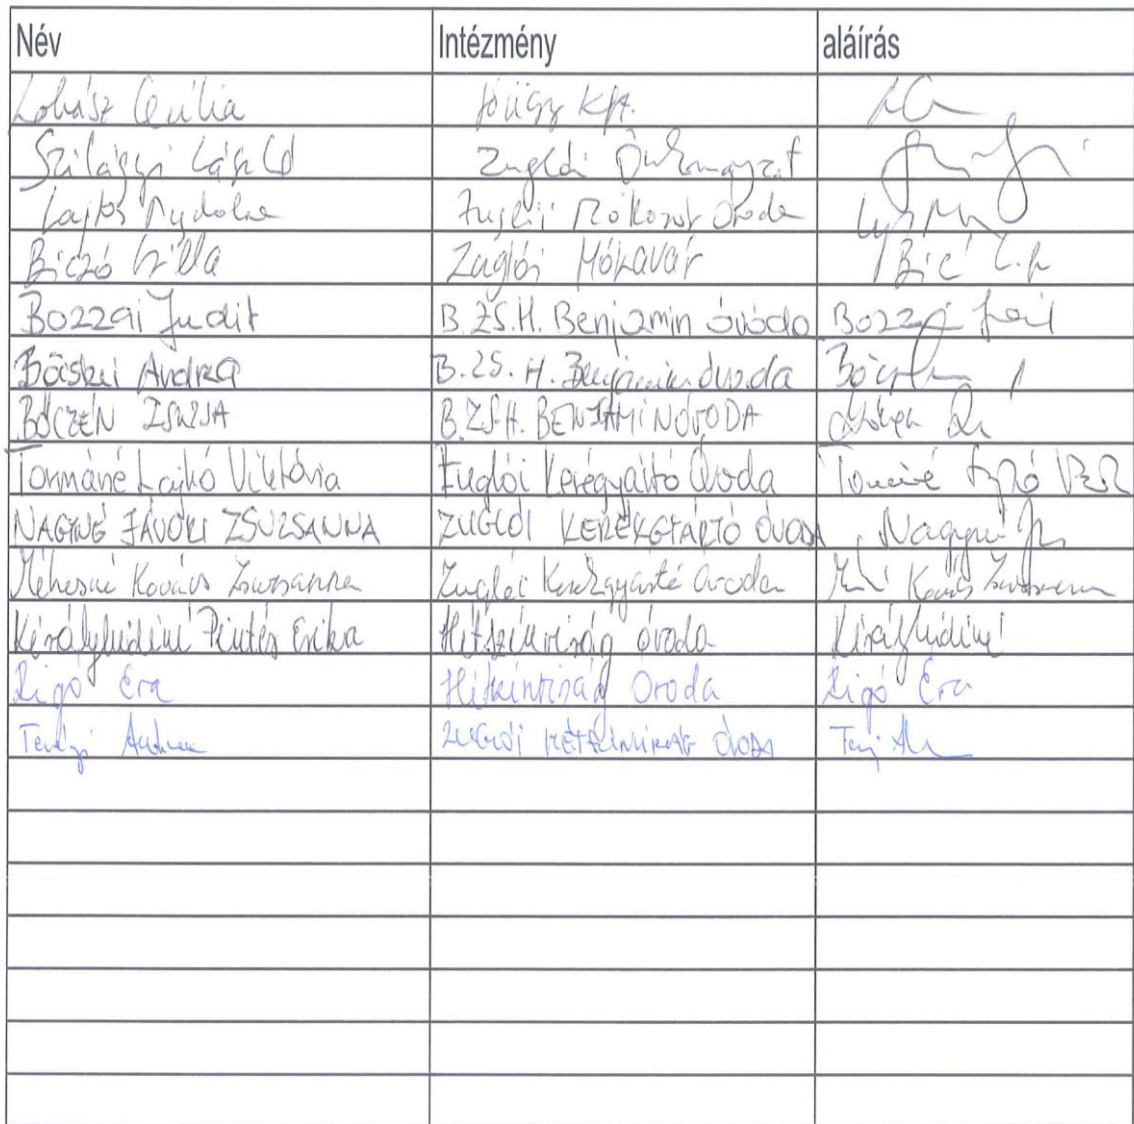 Név Intézmény aláírás
Lohász Cecília Kft.
Szilágyi László Zuglói Önkormányzat
Lajtos Zuglói Óvoda
Biczó Csilla Zuglói Mókavár
Bozzai Judit B.ZS.H. Benjamin óvóda Bozzai
Bácskei Andrea B.ZS.H. Benjamin óvoda
BÓCZÉN ZSUZSA B.ZS.H. BENJAMIN ÓVODA
Tormáné Lajkó Viktória Zuglói Kerégyártó Óvoda
NAGYNÉ JÁVORI ZSUZSANNA ZUGLÓI KERÉKGYÁRTÓ ÓVODA Nagyné
Méhesné Kovács Zsuzsanna Zuglói Kerékgyártó óvoda Kovács Zsuzsanna
Királyhidiné Pintés Erika Hétszínvirág óvoda Királyhidiné
Rigó Éva Hétszínvirág Óvoda Rigó Éva
Andrea ZUGLÓI HÉTSZÍNVIRÁG ÓVODA